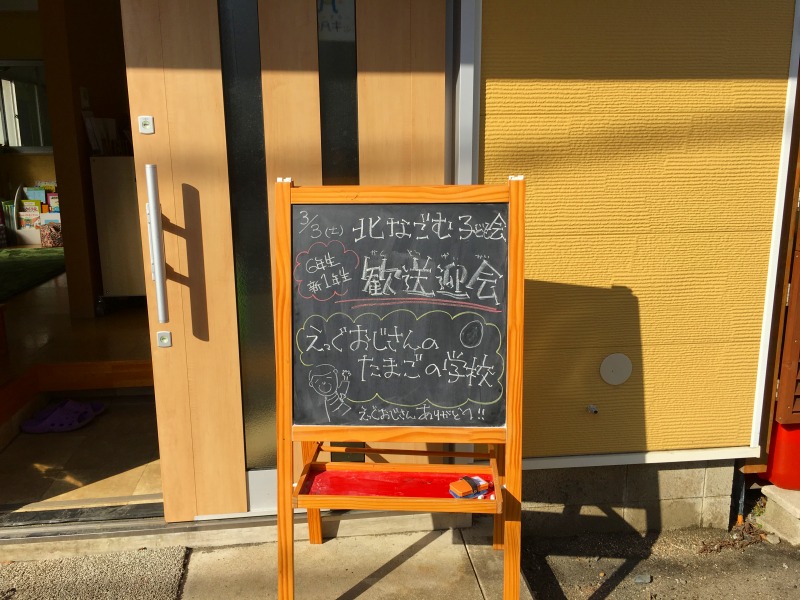 3/3(土) 北なごむ子ども会
6年生
新1年生
歓送迎会
えっぐおじさんの
たまごの学校
えっぐおじさんありがとう!!